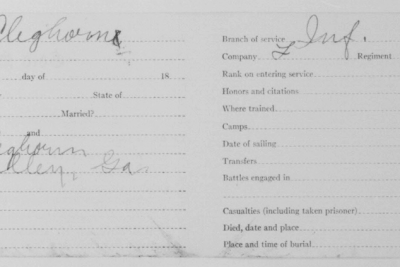 Cleghorn
day of 18
State of
Married?
and
Ga
Branch of service Inf.
Company L Regiment
Rank on entering service
Honors and citations
Where trained
Camps
Date of sailing
Transfers
Battles engaged in
Casualties (including taken prisoner)
Died, date and place
Place and time of burial